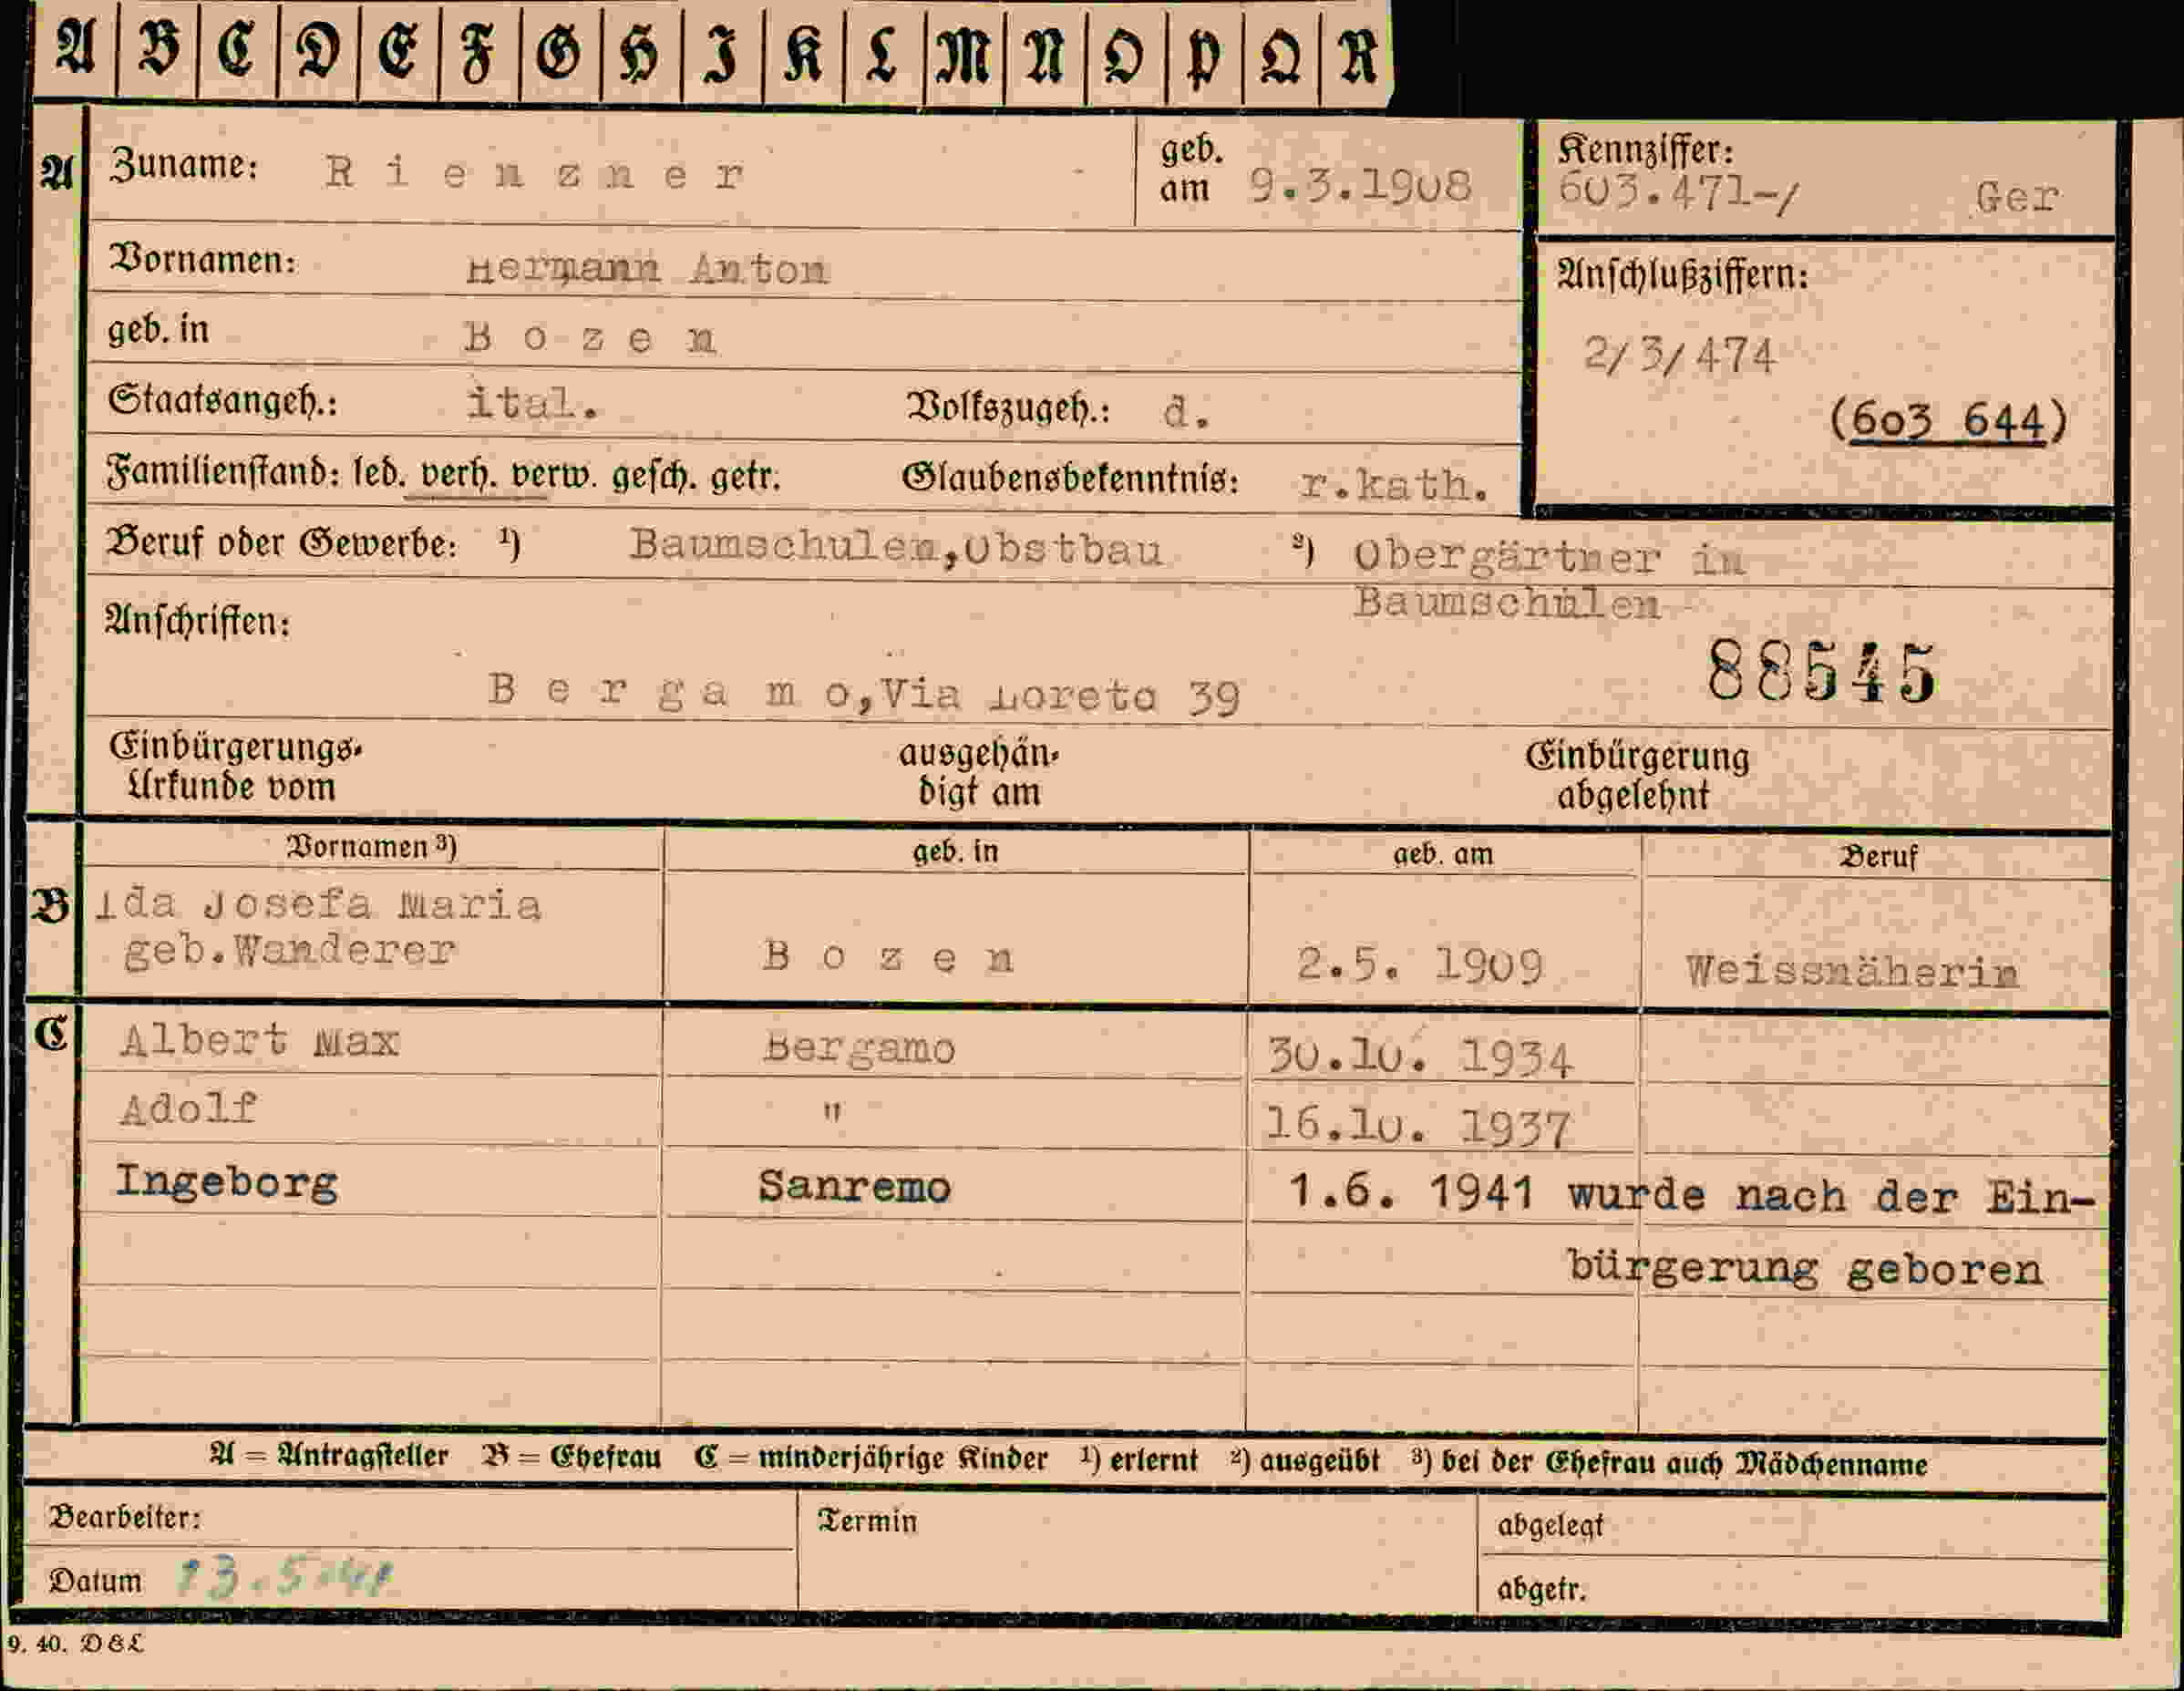 A B C D E F G H I K L M N O P Q R
A Zuname: Rienzner geb. am 9.3.1908 Kennziffer: 603.471-/ Ger
Vornamen: Hermann Anton
Anschlußziffern:
geb. in Bozen
2/3/474
Staatsangeh.: ital. Volkszugeh.: d.
(603 644)
Familienstand: led. verh. verw. gesch. getr. Glaubensbekenntnis: r.kath.
Beruf oder Gewerbe: ¹) Baumschulen,Obstbau ²) Obergärtner in
Baumschulen
Anschriften:
88545
Bergamo,Via Loreto 39
Einbürgerungs- ausgehän- Einbürgerung
Urkunde vom digt am abgelehnt
Vornamen ³) geb. in geb. am Beruf
B Ida Josefa Maria
geb.Wanderer Bozen 2.5. 1909 Weissnäherin
C Albert Max Bergamo 30.10. 1934
Adolf " 16.10. 1937
Ingeborg Sanremo 1.6. 1941 wurde nach der Ein-
bürgerung geboren
A = Antragsteller B = Ehefrau C = minderjährige Kinder ¹) erlernt ²) ausgeübt ³) bei der Ehefrau auch Mädchenname
Bearbeiter: Termin abgelegt
Datum 13.5.41 abgetr.
9. 40. D&L